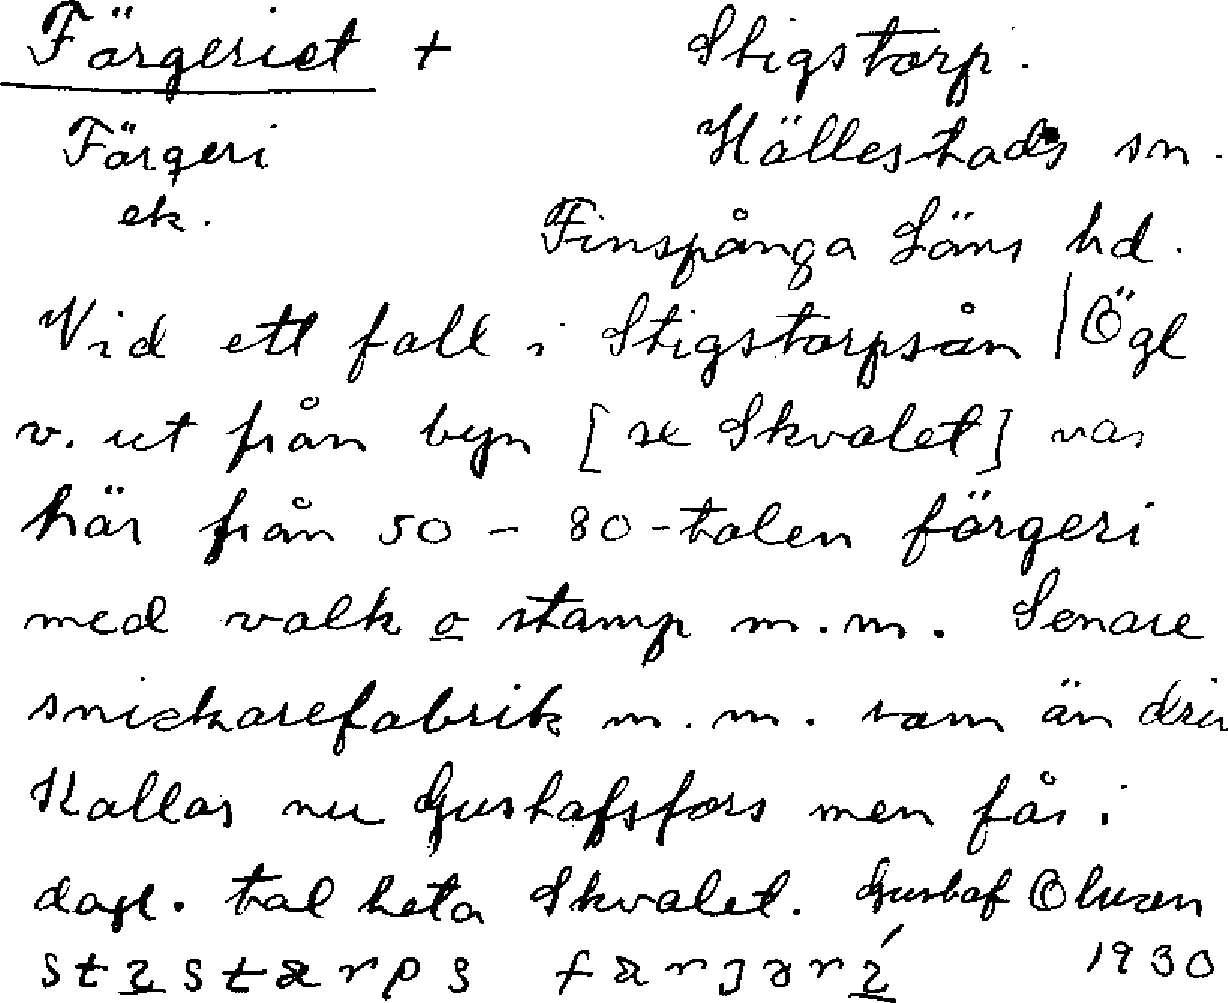 Färgeriet + Stigstorp.
Färgeri Hällestads sn.
ek. Finspånga Läns hd.
Vid ett fall i Stigstorpsån | Ögl
v. ut från byn [se Skvalet] var
här från 50 – 80-talen färgeri
med valk o stamp m.m. Senare
snickarefabrik m.m. som än driv
Kallas nu Gustafsfors men får i
dagl. tal heta Skvalet. Gustaf Olsson
1930